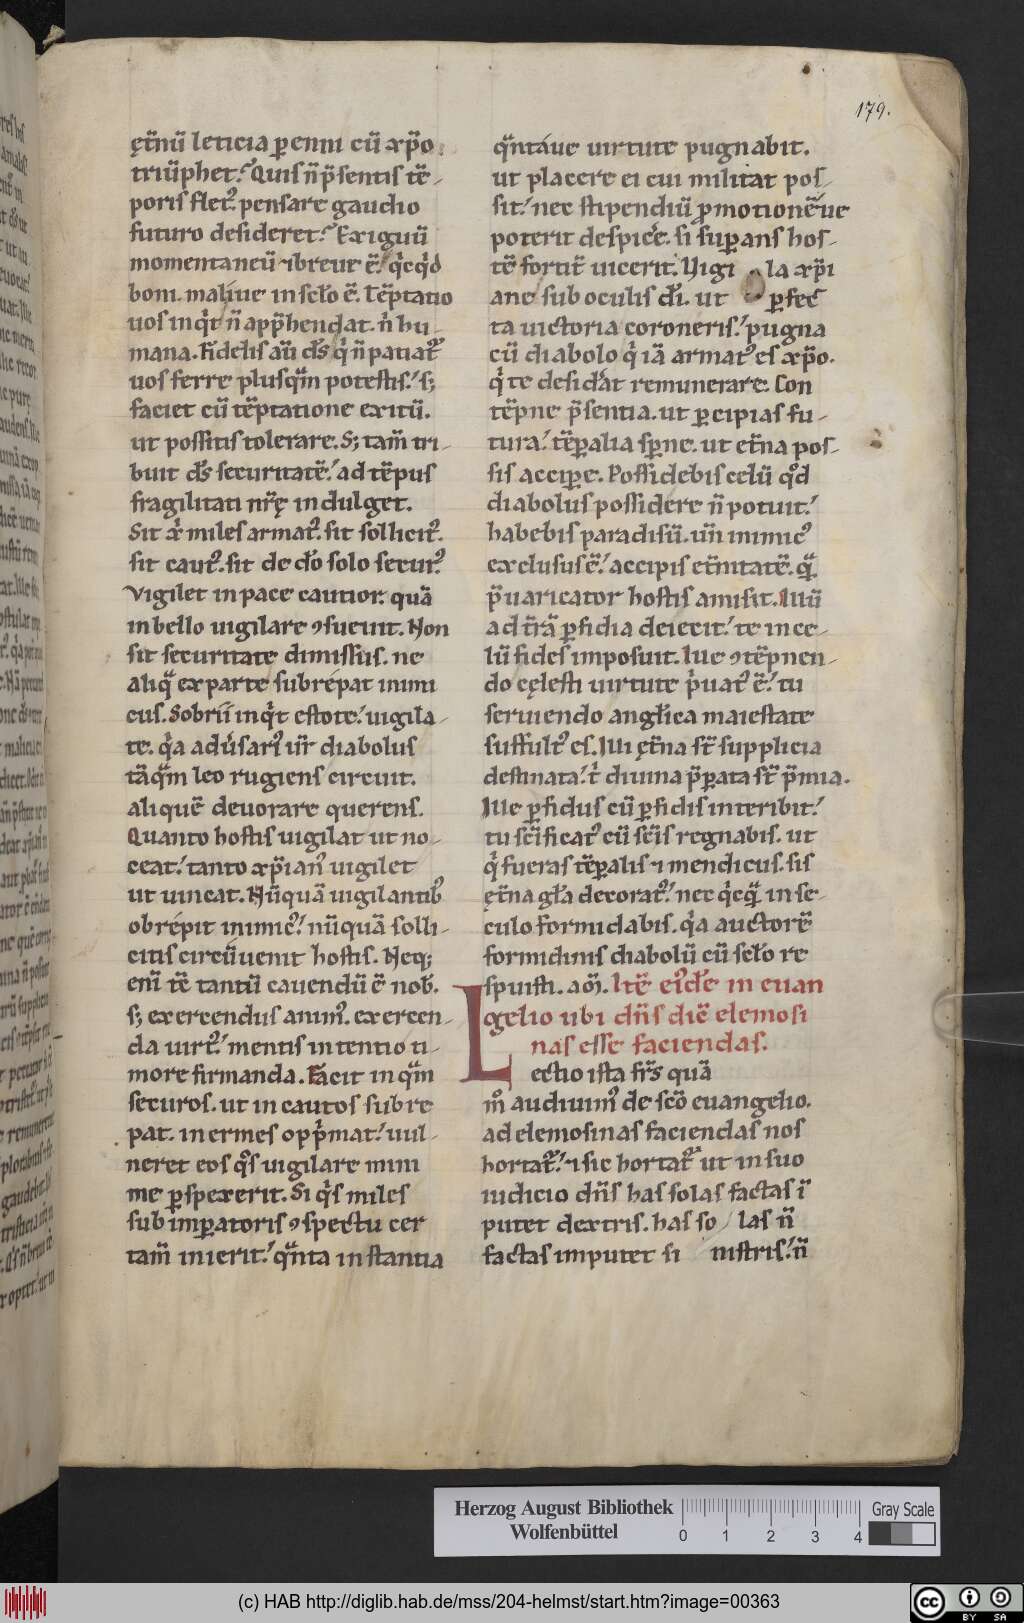 179.
ęt̄nū leticia p̲enni cū xp̄o
triūphet. Quis n̄ p̄sentis tē-
poris flet᷒ pensare gaudio
futuro desideret. Exiguū
momentaneū ⁊ breue ē. q̇cq̇d
boni. maliue in sclo ē. Tēptatio
uos inq̇t n̄ app̄hendat. n̄ hu-
mana. Fidelis aū d̄s q̇ n̄ patiat᷒
uos ferre plusqͣm potestis. s;
faciet cū tēptatione exitū.
ut possitis tolerare. S; tam̄ tri-
buit d̄s securitatē. ad tēpus
fragilitati nr̄ę indulget.
Sit g̊ miles armat᷒. sit sollicit᷒.
sit caut᷒. sit de d̄o solo secur᷒.
Vigilet in pace cautior. quā
in bello uigilare ꝯsueuit. Non
sit securitate dimissus. ne
aliqͣ ex parte subrépat inimi
cus. Sobrii inq̇t estote. uigila-
te. q̇a adūsari᷒ ur̄ diabolus
tāqͣm leo rugiens circuit.
aliquē deuorare querens.
Quanto hostis uigilat ut no-
ceat. tanto xp̄ian᷒ uigilet
ut uincat. Nūquā uigilantib᷒
obrépit inimic᷒. nūquā solli-
citis circūuenit hostis. Neq;
eni̅ tē tantū cauendū ē nob̄.
s; exercendus anim᷒. exercen-
da uirt᷒. mentis intentio ti-
more firmanda. Facit inqͣm
securos. ut incautos subre
pat. inermes opp̄mat. uul-
neret eos q̊s uigilare mini
me p̲spexerit. Si q̇s miles
sub imp̲atoris ꝯspectu cer
tam̄ inierit. qͣnta instantia
qͣntáue uirtute pugnabit.
ut placere ei cui militat pos-
sit. nec stipendiū promotionē ue
poterit despicẽ. si sup̲ans hos-
tē fortit̄ uicerit. Uigi la xp̄i
ane sub oculis d̄i. ut p̲fec
ta uictoria coroneris. pugna
cū diabolo q̇ iā armat᷒ es xp̄o.
q̇ te desid̄at remunerare. Con
tēpne p̄sentia. ut p̲cipias fu-
tura. tēp̲alia sp̲ne. ut et̄na pos-
sis accip̲e. Possidebis celū qd̄
diabolus possidere n̄ potuit.
habebis paradisū. un̄ inimic᷒
exclusus ē. accipis et̄nitatē. qͣ
p̄uaricator hostis amisit. Illū
ad t̄rā p̲fidia deiecit. te in ce-
lū fides imposuit. Ille ꝯtēpnen-
do cęlesti uirtute p̄uat᷒ ē. tu
seruiendo anglica maiestate
suffult᷒ es. Illi ęt̄na st̄ supplicia
destinata. t̄ diuina p̄parata st̄ p̄mia.
Ille p̲fidus cū p̲fidis interibit.
tu sc̄ificat᷒ cū sc̄is regnabis. ut
q̇ fueras tēp̲alis ⁊ mendicus. sis
ęt̄na gl̄a decorat᷒. nec q̇cqͣ in se-
culo formidabis. q̇a auctorē
formidinis diabolū cū sclo re
spuisti. am̄. Itē ei᷒dē in euan
gelio ubi dn̄s diē elemosi
nas esse faciendas.
Lectio ista fr̄s quā
m᷒ audiuim᷒ de sc̄o euangelio.
ad elemosinas faciendas nos
hortat᷒. ⁊ sic hortat᷒ ut in suo
iudicio dn̄s has solas factas ī
putet dextris. has so las n̄
factas imputet si nistris. n̄
Herzog August Bibliothek
Wolfenbüttel
0 1 2 3 4
Gray Scale
(c) HAB http://diglib.hab.de/mss/204-helmst/start.htm?image=00363
cc BY SA